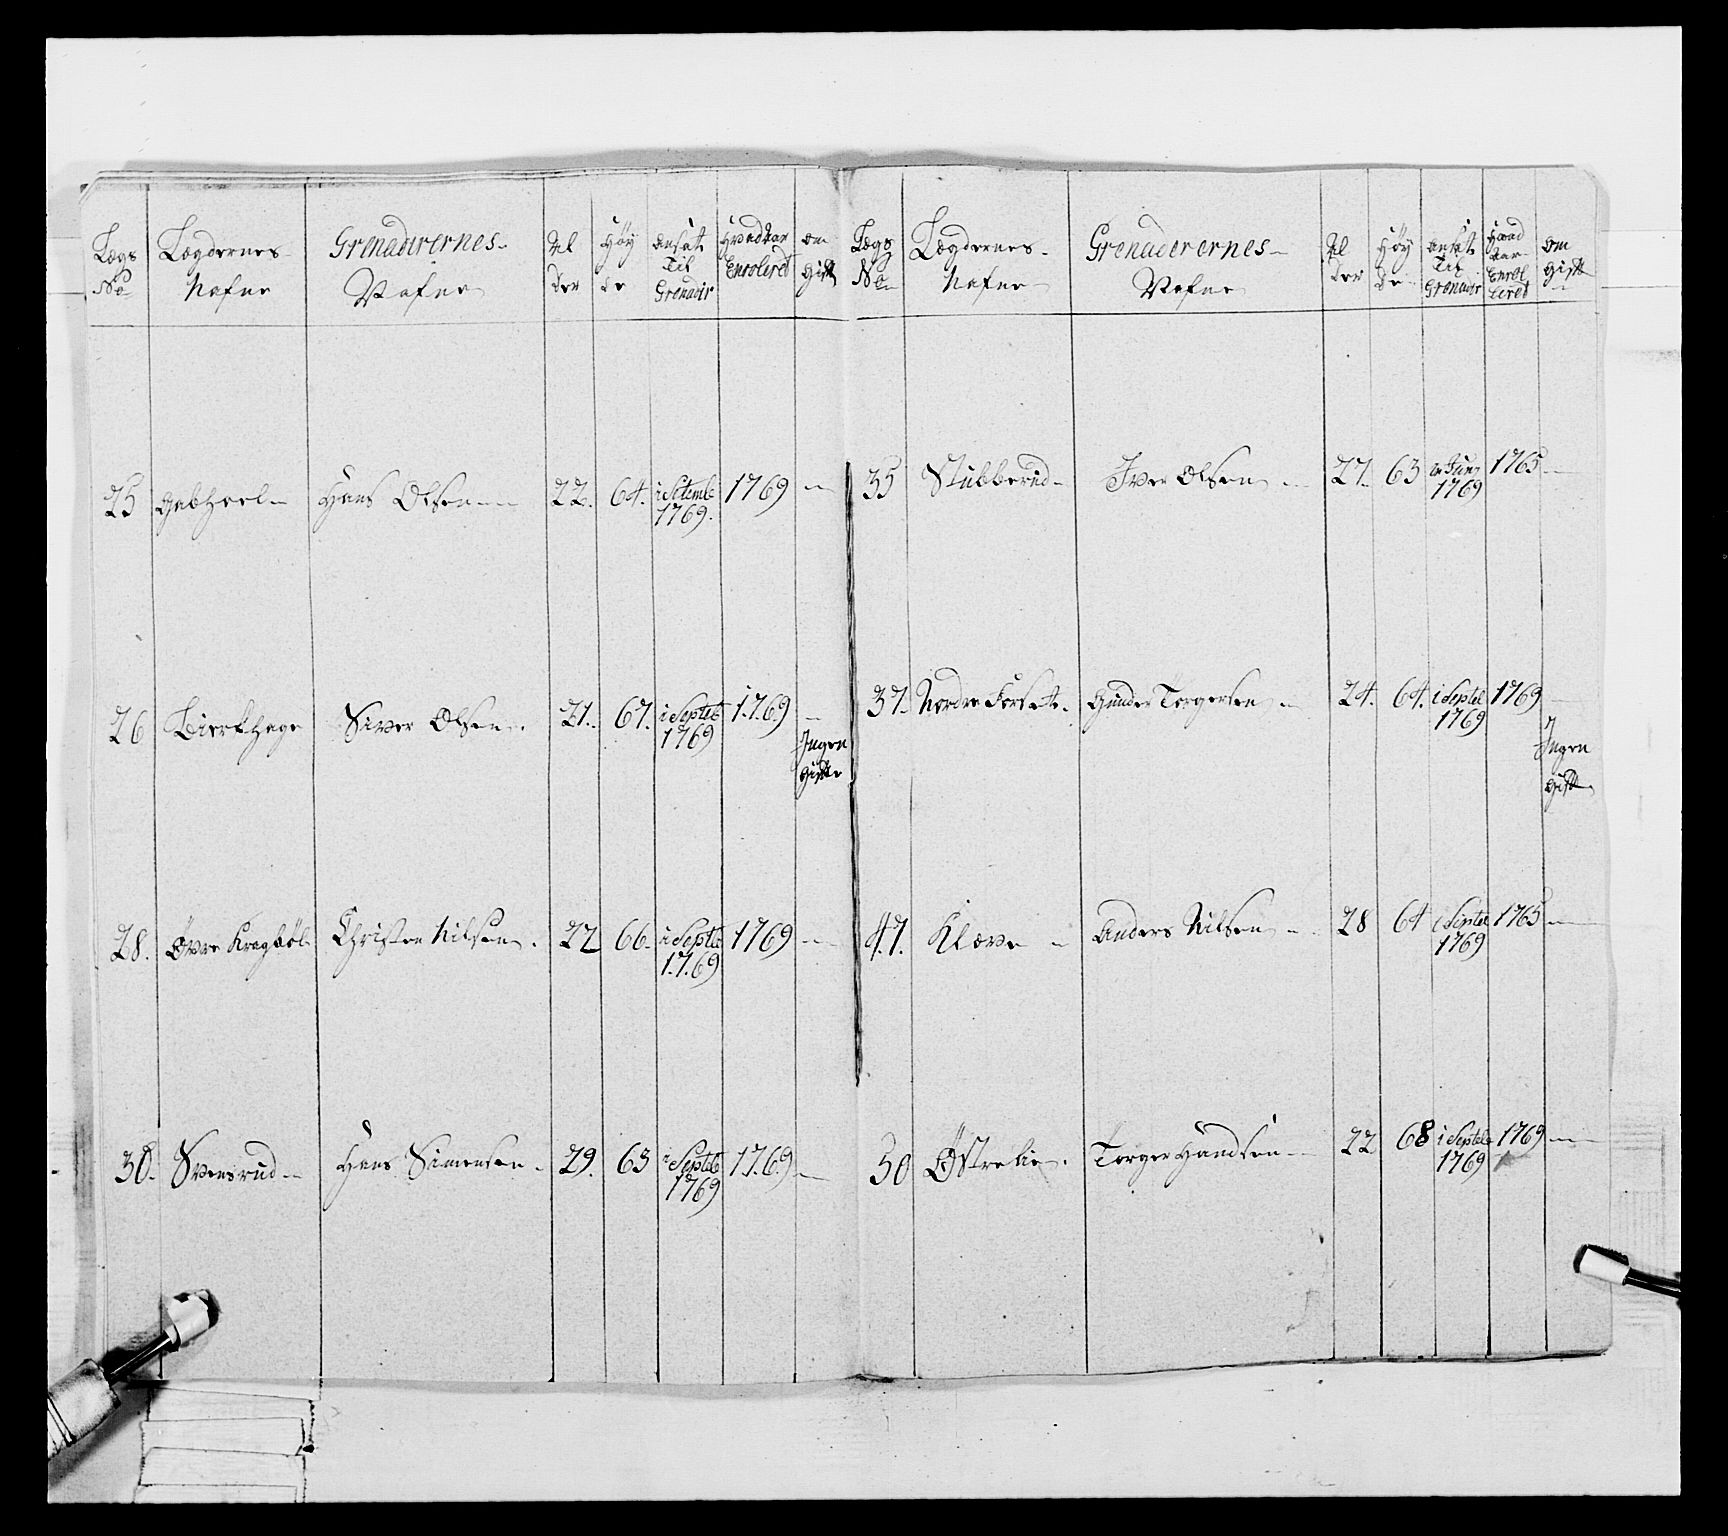 Lægs No Lægdernes Nafne Grenadirernes Nafne Al der Høy de ansat Til Grenadir Hvad aar Enrolered om gift
25 Gabhoel Hans Olsen 22. 64. i Setembr 1769. 1769
26 Bierkhage Siver Olsen 21. 67. i Septeb 1769 1769
Ingen gifte
28. Øvre Kragbøl Christen Nilsen 22 66. i Septb 1769 1769
30. Svensrud Hans Simensen 29. 63 i Septeb 1769 1769
Lægs No Lægdernes Nafne Grenaderernes Nafne Al der Høy de ansat Til Grenadir Hvad aar Enrol lered om gift
35 Stubberud Iver Olsen 27. 63 Juny 1769 1765
37. Nordre Forsett Gunder Torgersen 24. 64. i Septeb 1769 1769
Ingen gift
47. Klæve Anders Nilsen 28 64 i Septeb 1769 1765
50 Østrelie Torger Handsen 22 68 i Septeb 1769 1769